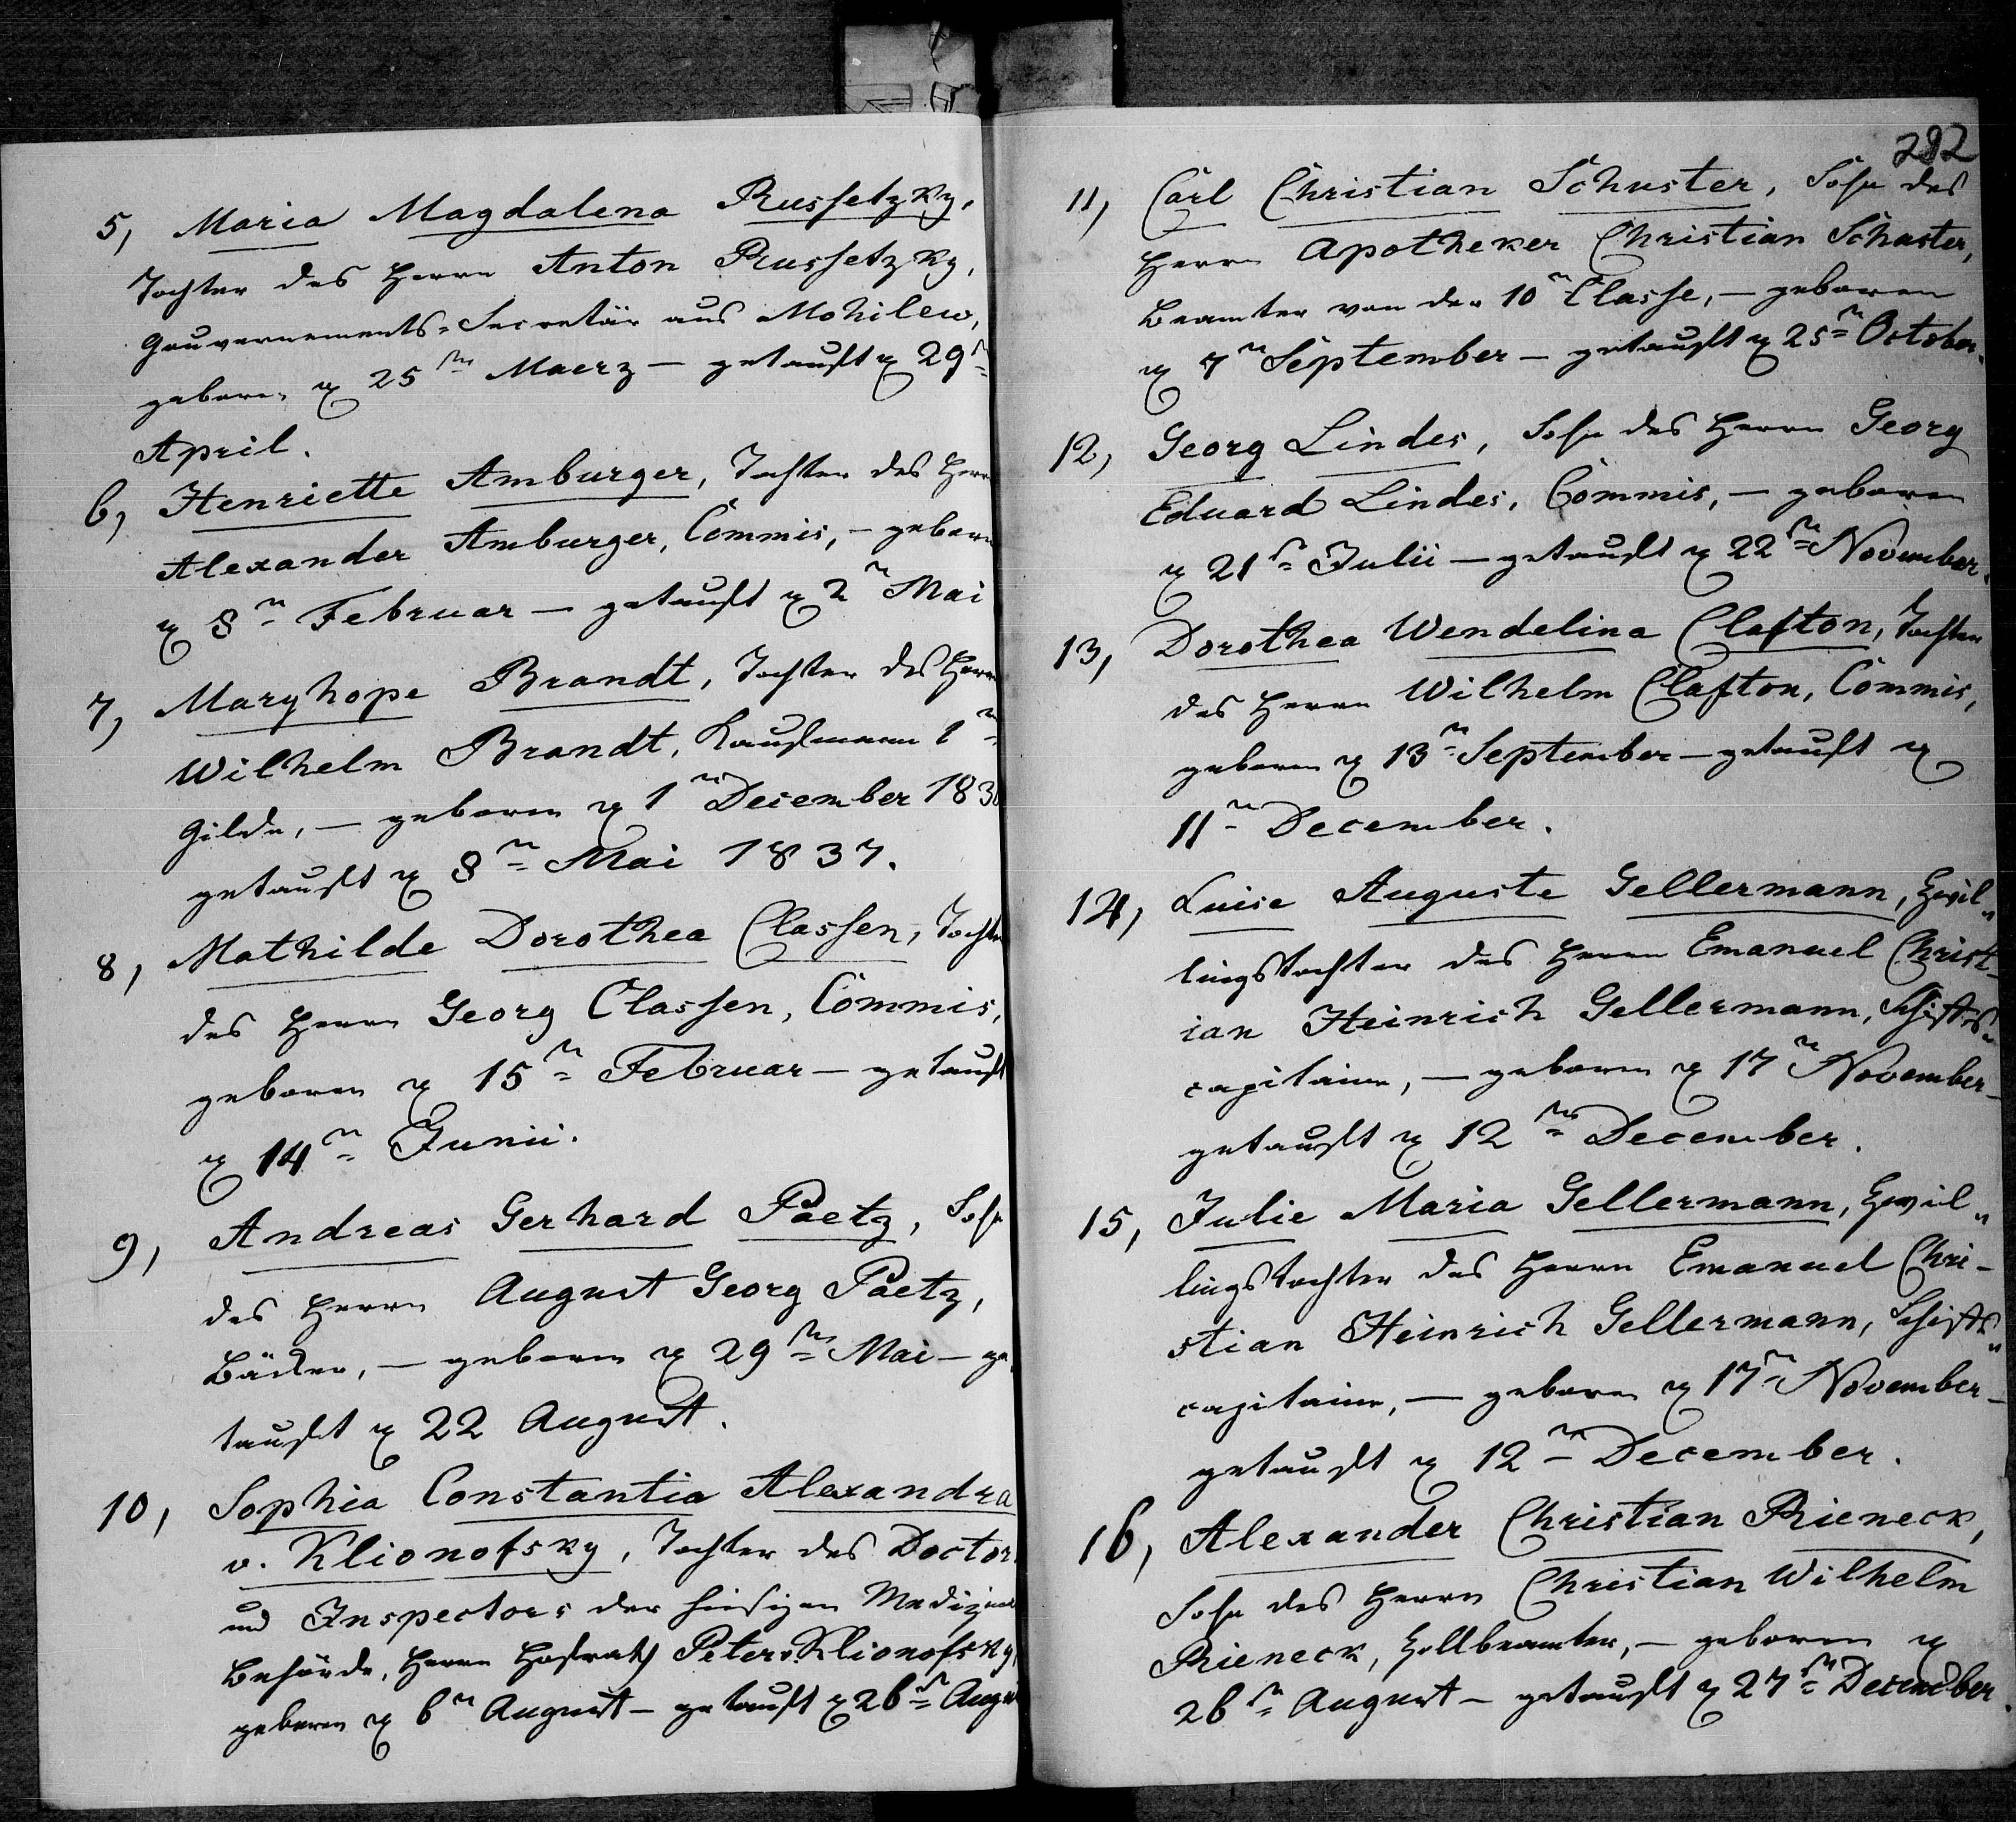 5, Maria Magdalena Russetzky,
Tochter des Herrn Anton Russetzky,
Gouvernements-Secretär aus Mohilew,
geboren d 25ten Maerz – getauft d 29t
April.
6, Henriette Amburger, Tochter des Herrn
Alexander Amburger, Commis, – geboren
d 8n Februar – getauft d 2n Mai
7, Maryhope Brandt, Tochter des Herrn
Wilhelm Brandt, Kaufmann 1n
Gilde, – geboren d 1n December 183
getauft d 8n Mai 1837.
8, Mathilde Dorothea Classen, Tochter
des Herrn Georg Classen, Commis,
geboren d 15n Februar – getauft
d 14n Junii.
9, Andreas Gerhard Paetz, Sohn
des Herrn August Georg Paetz,
Bäcker, – geboren d 29ten Mai – ge-
tauft d 22 August.
10, Sophia Constantia Alexandra
v. Klionofsky, Tochter des Doctor
und Inspectors der hiesigen Medizinal
Behörde, Herrn Hofrath Peter v. Klionofsky,
geboren d 6n August – getauft d 26n Augu
292
11, Carl Christian Schuster, Sohn des
Herrn Apotheker Christian Schuster,
Beamter von der 10n Classe, – geboren
d 7n September – getauft d 25n October.
12, Georg Lindes, Sohn des Herrn Georg
Eduard Lindes, Commis, – geboren
d 21n Julii – getauft d 22n November.
13, Dorothea Wendelina Clafton, Tochter
des Herrn Wilhelm Clafton, Commis,
geboren d 13n September – getauft d
11n December.
14, Luise Auguste Gellermann, Zwil-
lingstochter des Herrn Emanuel Christ-
ian Heinrich Gellermann, Schiffs-
capitaine, – geboren d 17n November –
getauft d 12n December.
15, Julie Maria Gellermann, Zwil-
lingstochter des Herrn Emanuel Chri-
stian Heinrich Gellermann, Schiffs-
capitaine, – geboren d 17n November –
getauft d 12n December.
16, Alexander Christian Rieneck,
Sohn des Herrn Christian Wilhelm
Rieneck, Zollbeamter, – geboren d
26n August – getauft d 27n December.